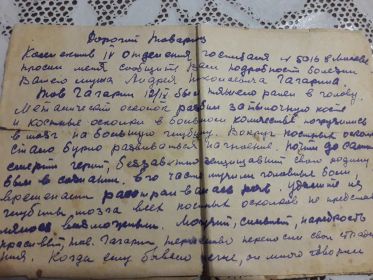 Дорогой Товарищ
Коллектив IV отделения госпиталя № 5016 в Москве
просил меня сообщить Вам подробности болезни
Вашего мужа Андрея Николаевича Гагарина.
Тов. Гагарин 12/IV был тяжело ранен в голову.
Металический осколок разбил затылочную кость
и костные осколки в большом количестве погрузились
в мозг на большую глубину. Вокруг костных осколков
стало бурно развиваться нагноение. Почти до самой
смерти герой, беззаветно защищавший свою родину
был в сознании. Его часто мучили головные боли,
временами расстраивалась речь. Удалить из
глубины мозга всех костных осколков не представ
лялось возможным. Могучий, сильный, на редкость
красивый, тов. Гагарин переносил свои страда
ния. Когда ему бывало легче, он много говорил